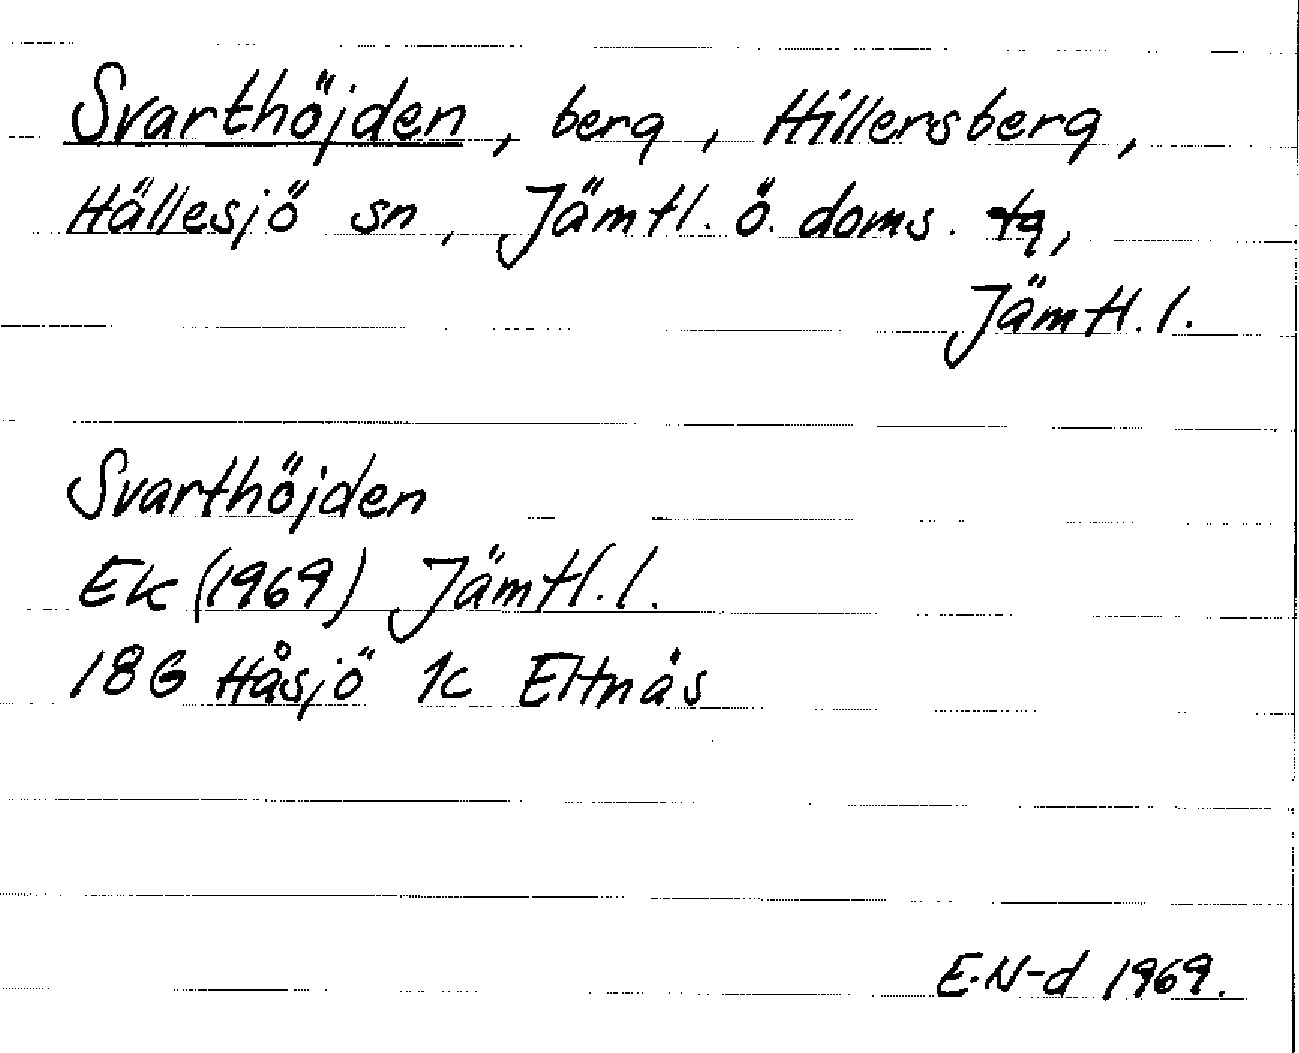 Svarthöjden, berg, Hillersberg,
Hällesjö sn, Jämtl. ö. doms. tg,
Jämtl. l.
Svarthöjden
Ek (1969) Jämtl. l.
18G Håsjö 1c Eltnäs
E.N-d 1969.